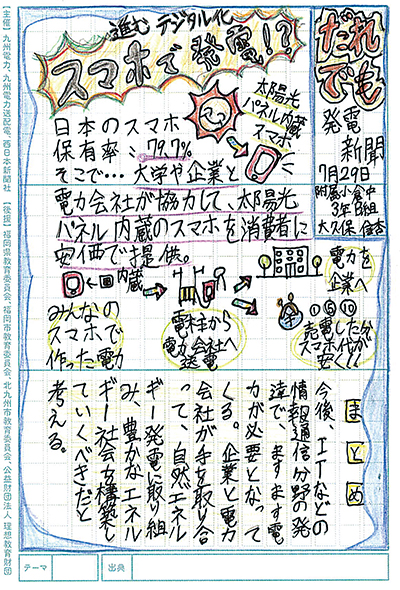 進むデジタル化
スマホで発電!?
だれ
でも
発電
新聞
7月29日
附属小倉中
3年B組
大久保
太陽光
パネル内蔵
スマホ
日本のスマホ
保有率:79.7%
そこで…大学や企業と
電力会社が協力して、太陽光
パネル内蔵のスマホを消費者に
安価で提供。
内蔵
みんなの
スマホで
作った電力
電柱から
電力会社へ
送電
電力を
企業へ
① ⑤ ⑩
売電した分
スマホ代が
安く!!
まとめ
今後、ITなどの
情報通信分野の発
達で、ますます電
力が必要となって
くる。企業と電力
会社が手を取り合
って、自然エネル
ギー発電に取り組
み、豊かなエネル
ギー社会を構築し
ていくべきだと
考える。
【主催】九州電力、九州電力送配電、西日本新聞社
【後援】福岡県教育委員会、福岡市教育委員会、北九州市教育委員会、公益財団法人 理想教育財団
テーマ
出典